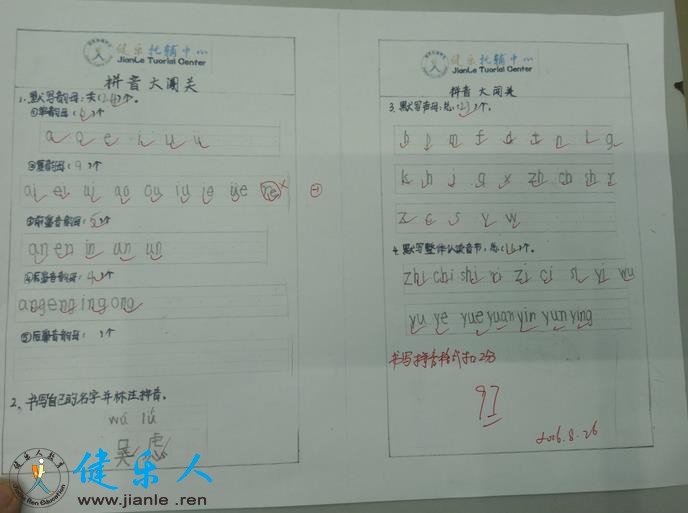 健乐托辅中心
JianLe Tuorial Center
拼音大闯关
1、默写韵母:共(24)个。
①单韵母(6)个
a o e i u ü
②复韵母(9)个
ai ei ui ao ou iu ie üe
③前鼻音韵母(5)个
an en in un ün
④后鼻音韵母(4)个
ang eng ing ong
⑤后鼻音韵母( )个
2、书写自己的名字并标注拼音。
吴虑
健乐托辅中心
JianLe Tuorial Center
拼音大闯关
3、默写声母:总(21)个。
b p m f d t n l g
k h j q x zh ch sh r
z c s y w
4、默写整体认读音节,总(16)个。
zhi chi shi ri zi ci si yi wu
yu ye yue yuan yin yun ying
书写拼音格式扣2分
2016.8.26
健乐人教育
健乐人
www.jianle.ren